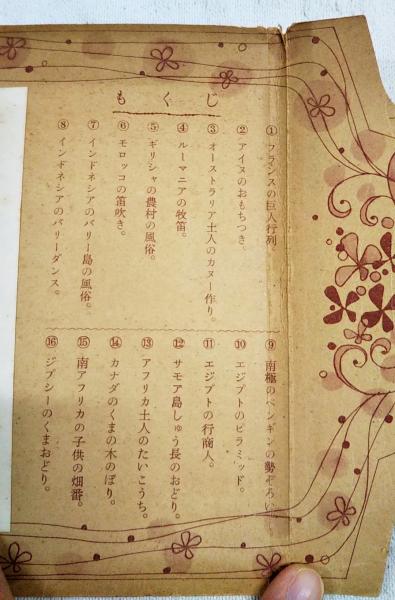 もくじ
① フランスの巨人行列。
② アイヌのおもちつき。
③ オーストラリア土人のカヌー作り。
④ ルーマニアの牧笛。
⑤ ギリシャの農村の風俗。
⑥ モロッコの笛吹き。
⑦ インドネシアのバリー島の風俗。
⑧ インドネシアのバリーダンス。
⑨ 南極のペンギンの勢ぞろい。
⑩ エジプトのピラミッド。
⑪ エジプトの行商人。
⑫ サモア島しゅう長のおどり。
⑬ アフリカ土人のたいこうち。
⑭ カナダのくまの木のぼり。
⑮ 南アフリカの子供の畑番。
⑯ ジプシーのくまおどり。